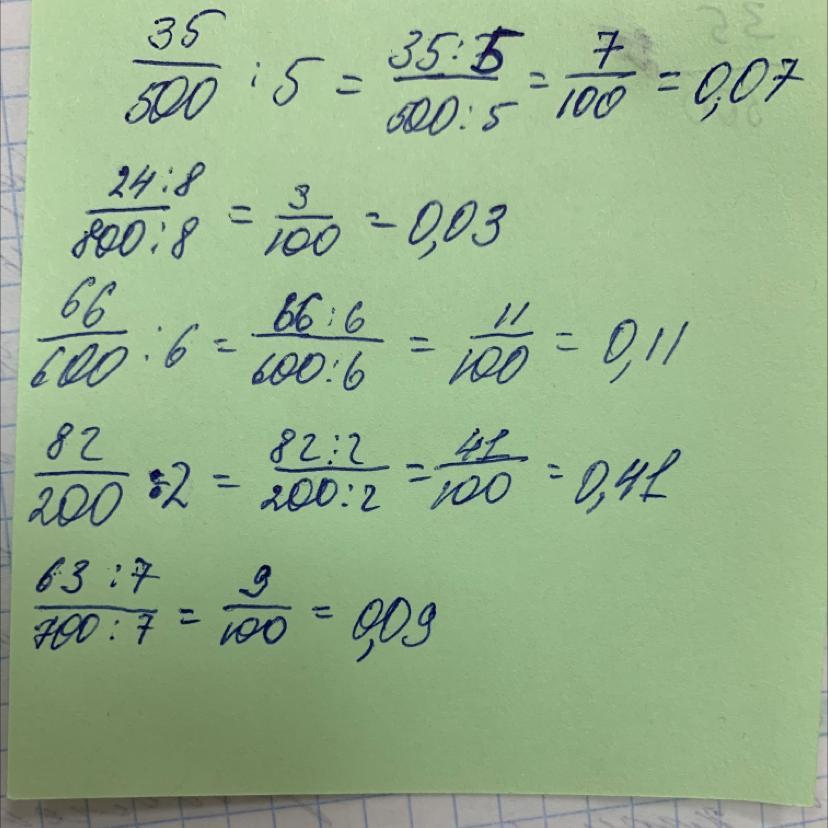 35/500 : 5 = 35:5/500:5 = 7/100 = 0,07
24:8/800:8 = 3/100 = 0,03
66/600 : 6 = 66:6/600:6 = 11/100 = 0,11
82/200 : 2 = 82:2/200:2 = 41/100 = 0,41
63:7/700:7 = 9/100 = 0,09